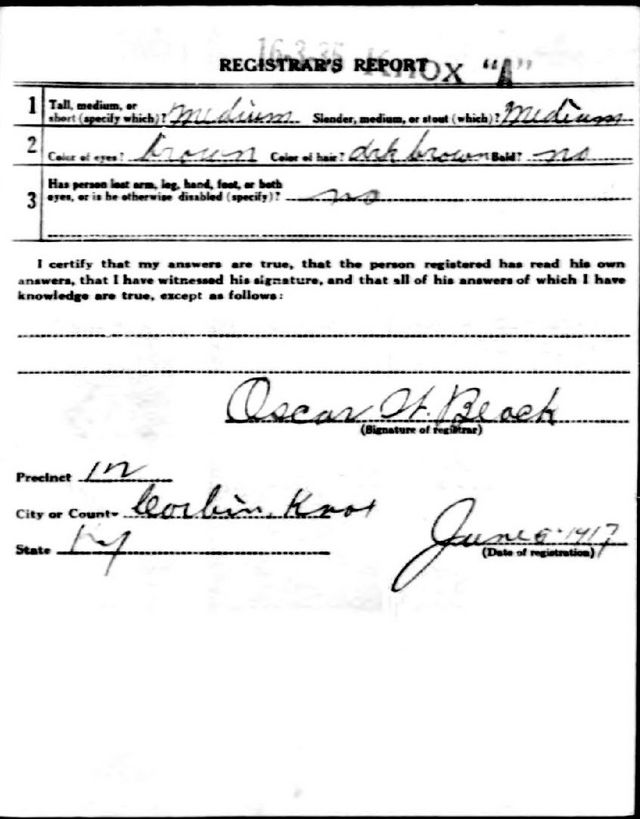 16-3-35 Knox "A"
REGISTRAR'S REPORT
1 Tall, medium, or short (specify which)? Medium Slender, medium, or stout (which)? Medium
2 Color of eyes? brown Color of hair? drk brown Bald? no
3 Has person lost arm, leg, hand, foot, or both
eyes, or is he otherwise disabled (specify)? no
I certify that my answers are true, that the person registered has read his own
answers, that I have witnessed his signature, and that all of his answers of which I have
knowledge are true, except as follows:
Oscar W. Black
(Signature of registrar)
Precinct
City or County Corbin, Knox
State Ky
June 5-1917
(Date of registration)